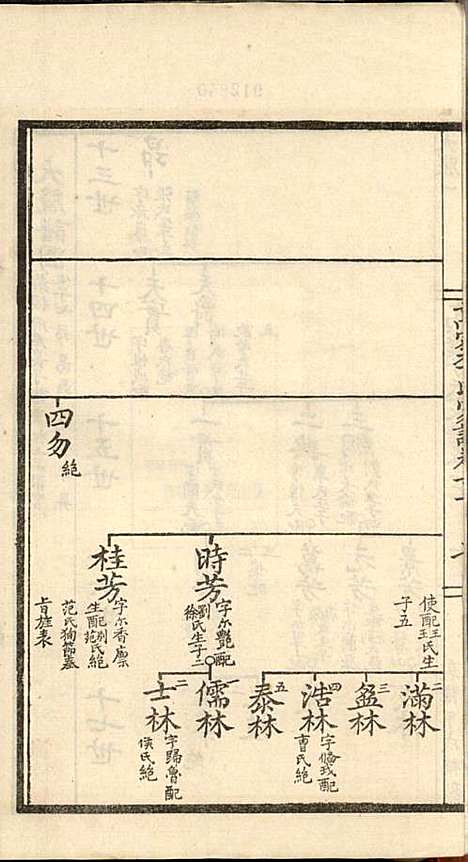 使配王氏生
子五
二
滿林
三
盈林
四
浩林
字脩我配
曹氏絶
五
泰林
時芳
字尔艷配
劉氏生子二
徐
一
儒林
二
士林
字歸魯配
侯氏絶
桂芳
字尔香廩
生配劉氏絶
范
范氏殉節墓
旨旌表
四勿
絶